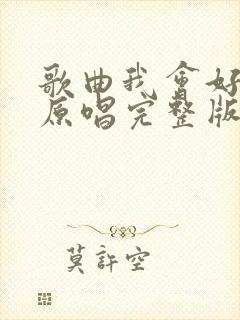 歌曲我会好
原唱完整版
莫許空